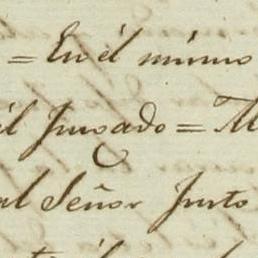 = En él mismo
él Juzgado = M
al Señor Justo